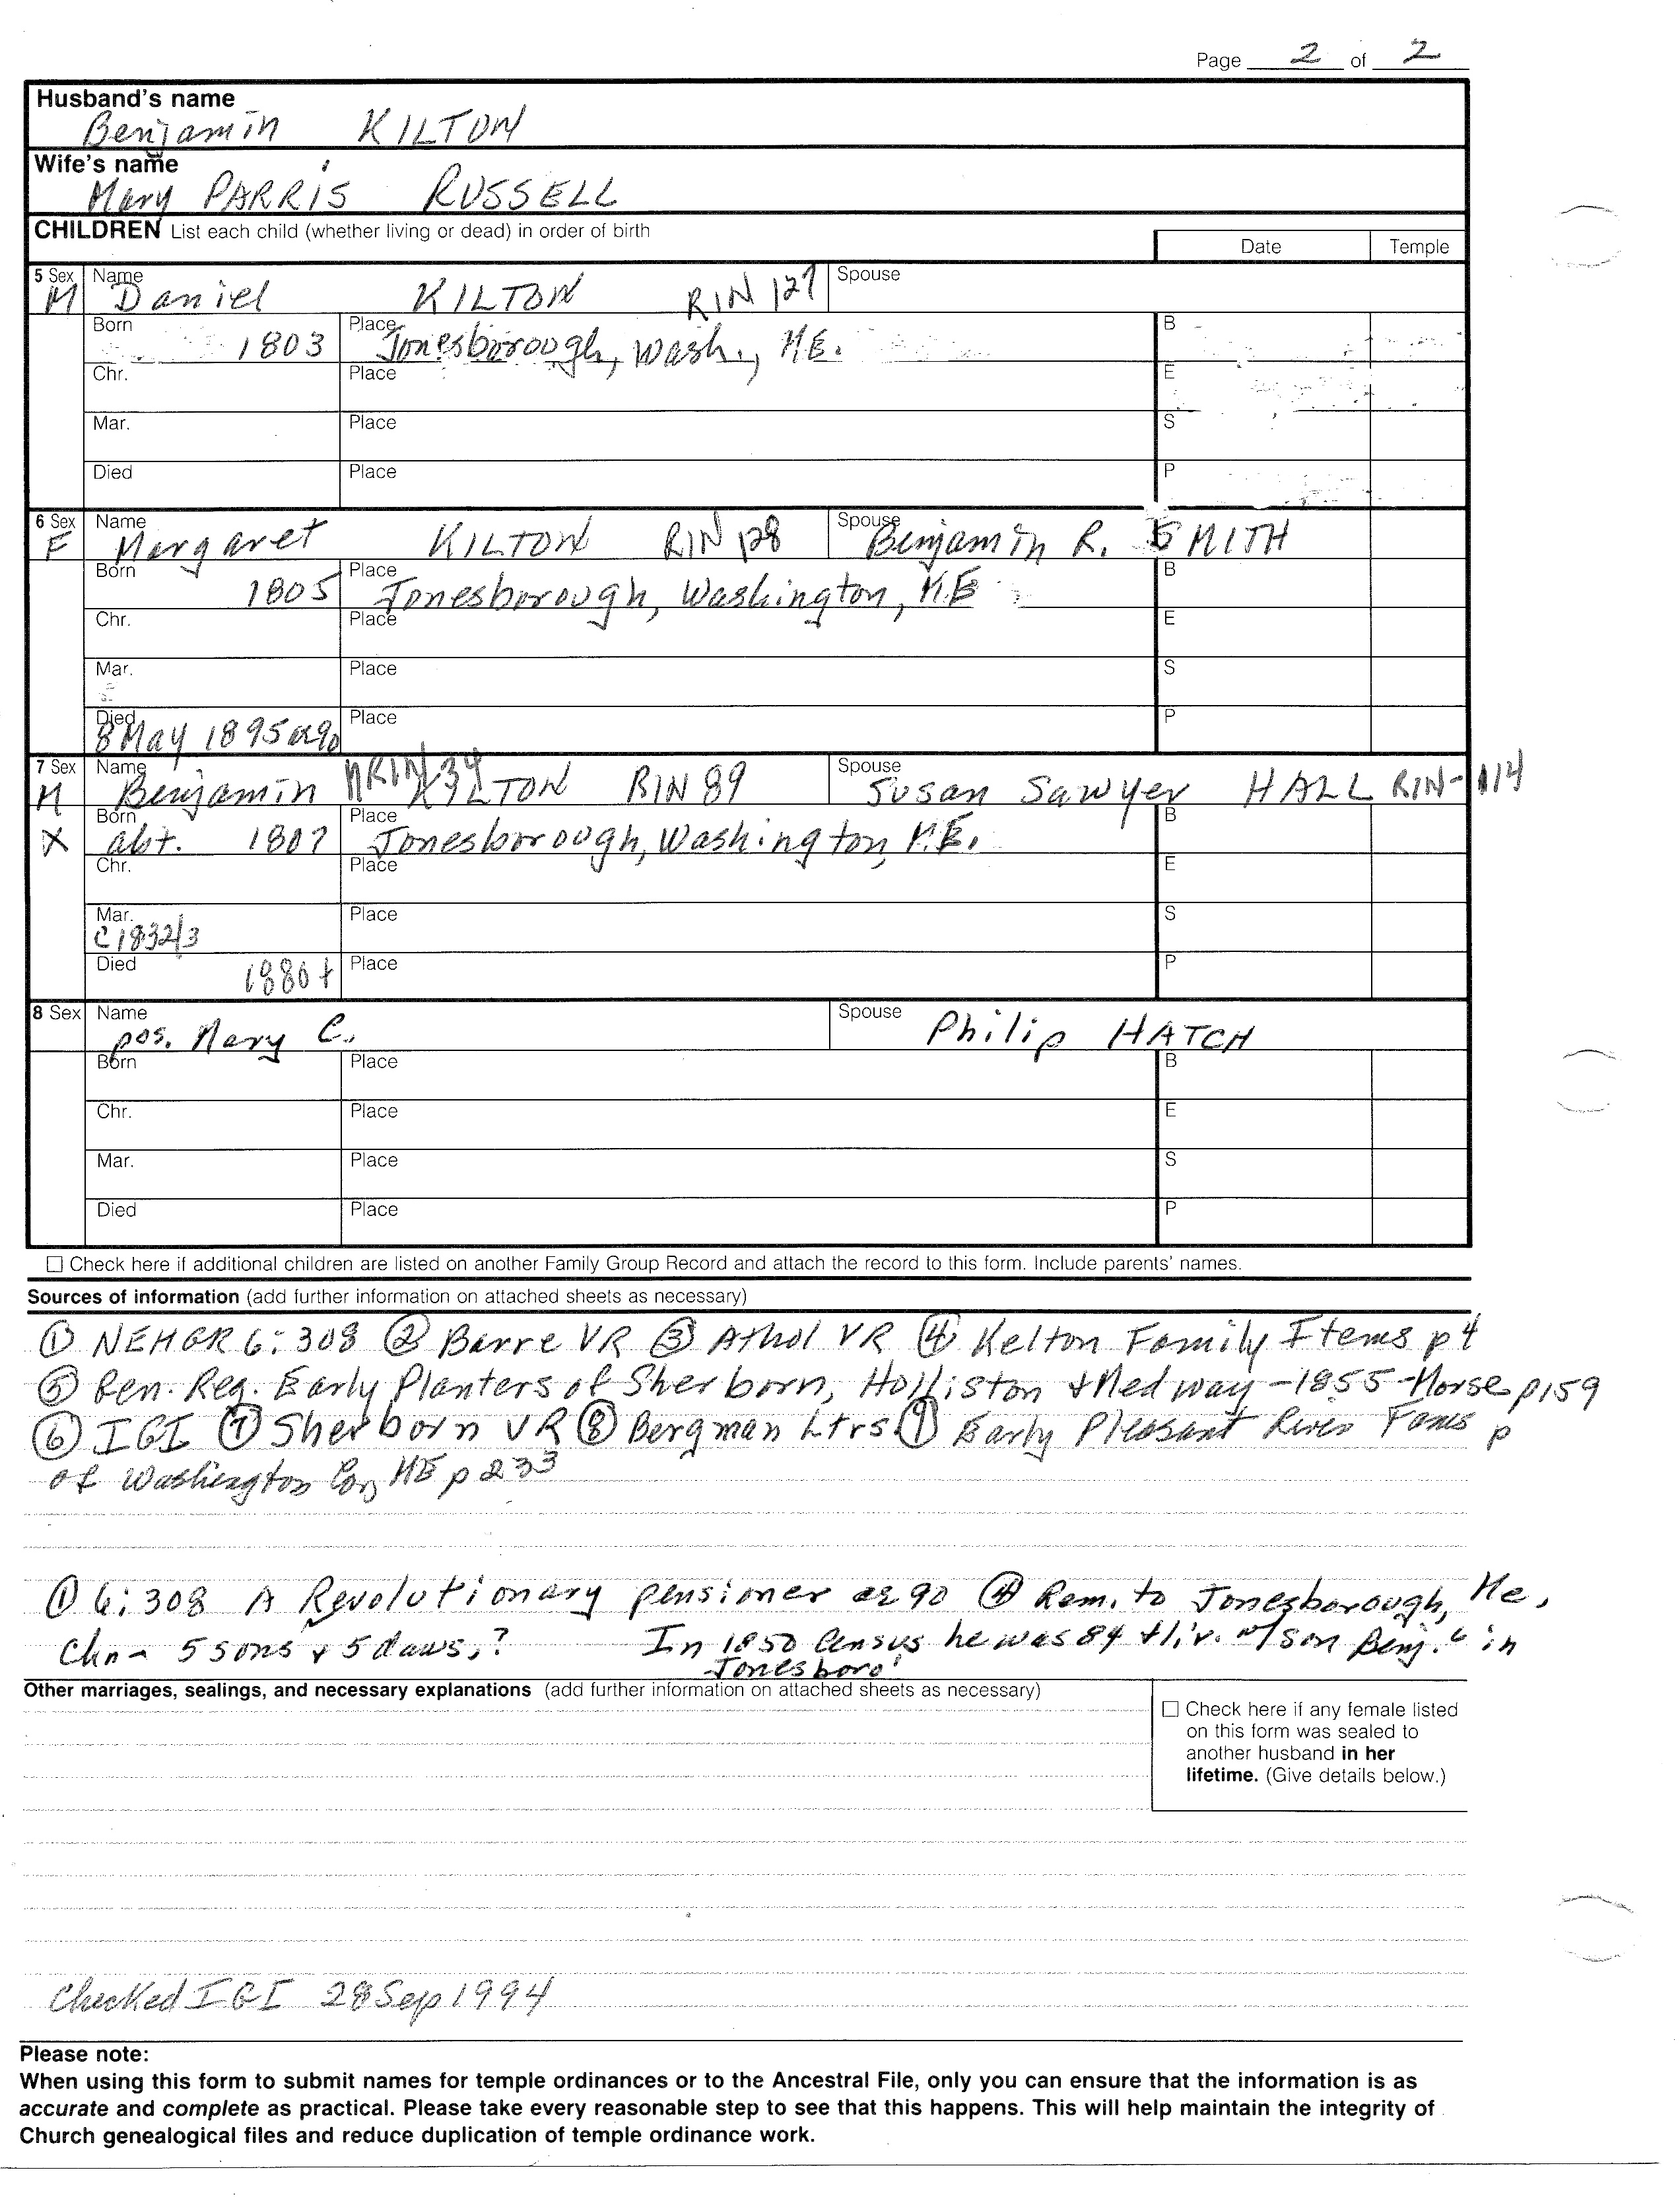 Page 2 of 2
Husband's name
Benjamin KILTON
Wife's name
Mary PARRIS RUSSELL
CHILDREN List each child (whether living or dead) in order of birth
Date Temple
5 Sex Name Spouse
M Daniel KILTON RIN 127
Born Place B
1803 Jonesborough, Wash., ME.
Chr. Place E
Mar. Place S
Died Place P
6 Sex Name Spouse
F Margaret KILTON RIN 128 Benjamin R. SMITH
Born Place B
1805 Jonesborough, Washington, ME
Chr. Place E
Mar. Place S
Died Place P
8 May 1895 ae 90
7 Sex Name Spouse
M Benjamin MRIN 34 KILTON RIN 89 Susan Sawyer HALL RIN-114
Born Place B
X abt. 1807 Jonesborough, Washington, ME.
Chr. Place E
Mar. Place S
C 1832/3
Died Place P
1880+
8 Sex Name Spouse
pos. Mary C. Philip HATCH
Born Place B
Chr. Place E
Mar. Place S
Died Place P
☐ Check here if additional children are listed on another Family Group Record and attach the record to this form. Include parents' names.
Sources of information (add further information on attached sheets as necessary)
① NEHGR 6:308 ② Barre VR ③ Athol VR ④ Kelton Family Items p 4
⑤ Gen. Reg. Early Planters of Sherborn, Holliston & Medway-1855-Morse p159
⑥ IGI ⑦ Sherborn VR ⑧ Bergman Ltrs ⑨ Early Pleasant River Fams p
of Washington Co, ME p 233
① 6:308 A Revolutionary pensioner ae 90 ④ Rem. to Jonesborough, Me,
Chn - 5 sons & 5 daus,? In 1850 Census he was 84 & liv. w/ son Benj. in
Jonesboro'
Other marriages, sealings, and necessary explanations (add further information on attached sheets as necessary)
☐ Check here if any female listed
on this form was sealed to
another husband in her
lifetime. (Give details below.)
Checked IGI 28 Sep 1994
Please note:
When using this form to submit names for temple ordinances or to the Ancestral File, only you can ensure that the information is as
accurate and complete as practical. Please take every reasonable step to see that this happens. This will help maintain the integrity of
Church genealogical files and reduce duplication of temple ordinance work.